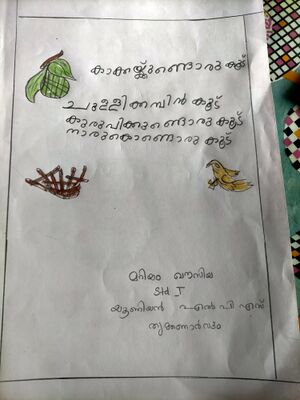 കാക്കയ്ക്കുണ്ടൊരു കൂട്
ചുള്ളിക്കമ്പിൻ കൂട്
കുരുവിക്കുണ്ടൊരു കൂട്
നാരുകൊണ്ടൊരു കൂട്
മറിയം ഔസിയ
Std I
യൂണിയൻ എൽ പി എസ്